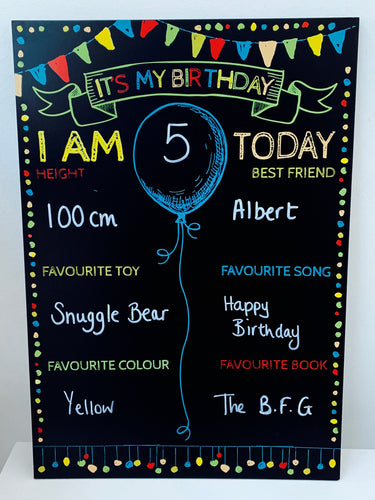 ITS MY BIRTHDAY
I AM 5 TODAY
HEIGHT
BEST FRIEND
100cm
Albert
FAVOURITE TOY
FAVOURITE SONG
Snuggle Bear
Happy
Birthday
FAVOURITE COLOUR
FAVOURITE BOOK
Yellow
The B.F.G